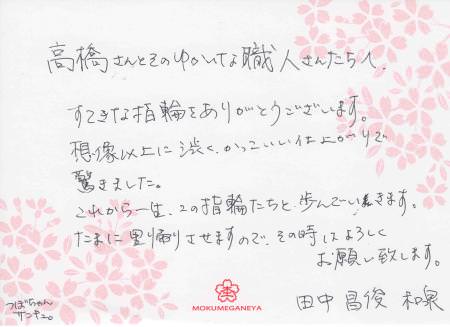 高橋さんとそのゆかいな職人さんたちへ
すてきな指輪をありがとうございます。
想像以上に渋く、かっこいい仕上がりで
驚きました。
これから一生、この指輪たちと歩んでいきます。
たまに里帰りさせますので、その時はよろしく
お願い致します。
つぼちゃん
サンキュ。
MOKUMEGANEYA
田中 昌俊 和泉